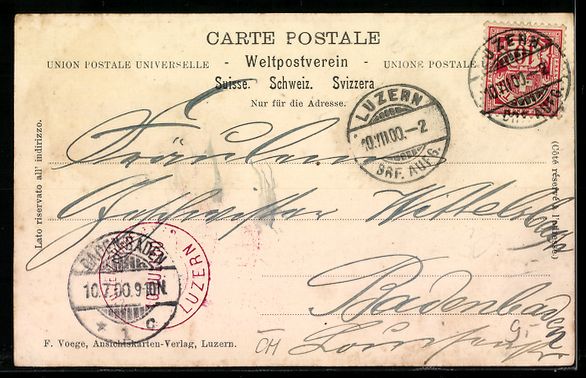 CARTE POSTALE
UNION POSTALE UNIVERSELLE - Weltpostverein - UNIONE POSTALE
Suisse. Schweiz. Svizzera
Nur für die Adresse.
LUZERN
10.VII.00.-2
BRF. AUFG.
LUZERN
BRF. AUFG.
Lato riservato all' indirizzo.
(Côté réservé à l'adresse)
Fräulein
Geschwister Wittelbach
Baden-Baden
BADEN-BADEN
10.7.00.9-10N.
* 1 c
LUZERN
F. Voege, Ansichtskarten-Verlag, Luzern.